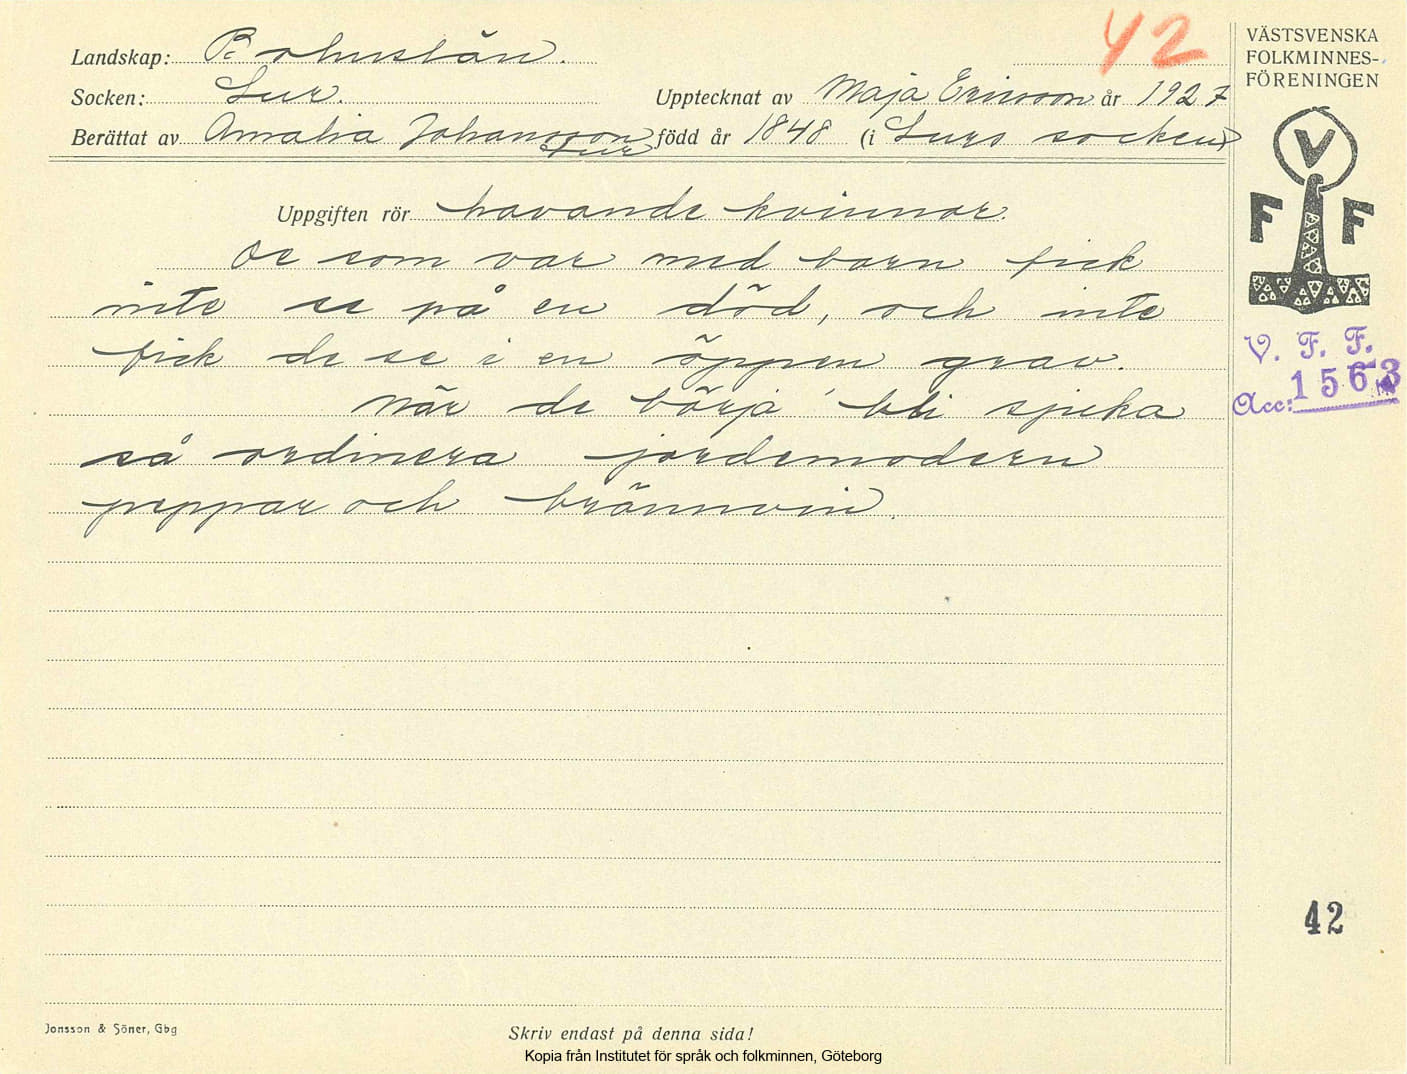 42
VÄSTSVENSKA
FOLKMINNES-
FÖRENINGEN
Landskap: Bohuslän.
Socken: Lur.
Upptecknat av Maja Ericsson år 1927
Berättat av Amalia Johansson född år 1848 (i Lurs socken)
Lur
V
F F
Uppgiften rör havande kvinnor.
De som var med barn fick
inte se på en död, och inte
fick de se i en öppen grav.
När de börja' bli sjuka
så ordinera jordemodern
peppar och brännvin.
V. F. F.
Acc: 1563
42
Jonsson & Söner, Gbg
Skriv endast på denna sida!
Kopia från Institutet för språk och folkminnen, Göteborg